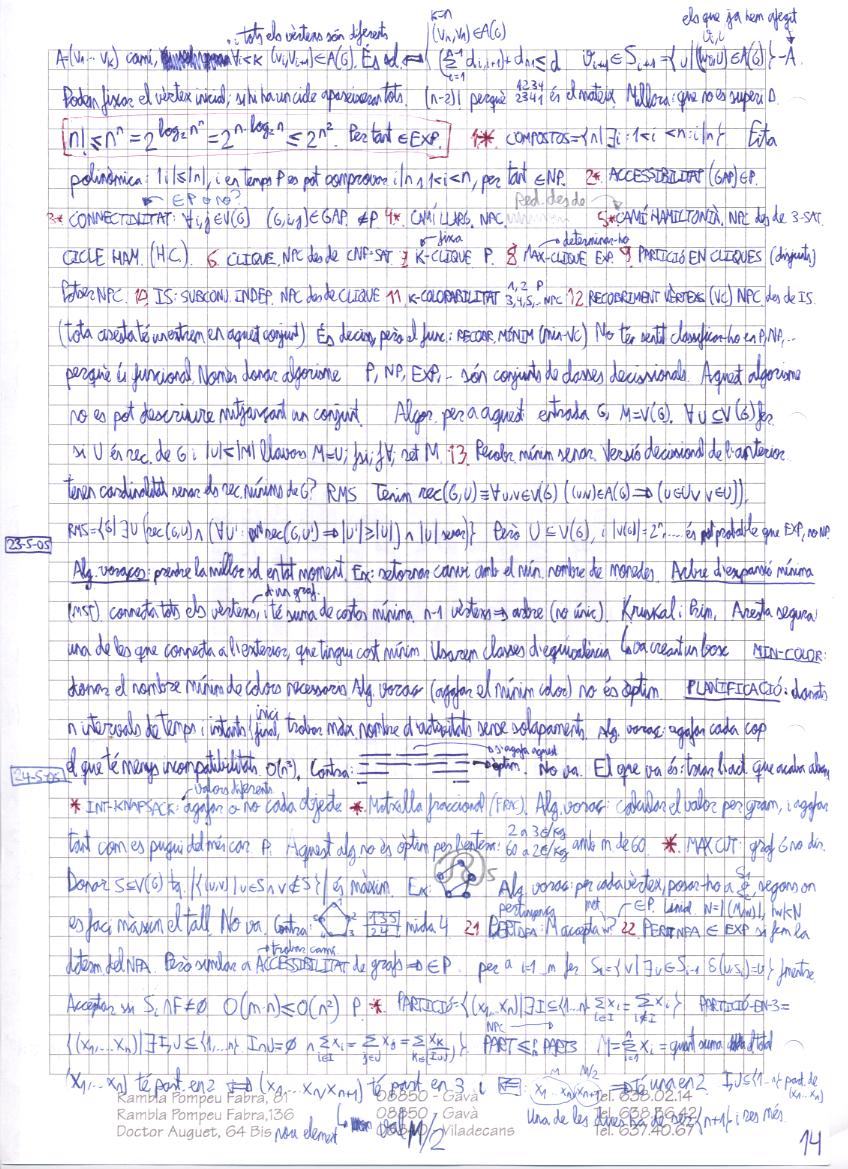 tots els vèrtexs són diferents
k=n
(vₙ,v₁)∈A(G)
els que ja hem afegit
A=(v₁..v_k) camí, ∀i<k (vᵢ,vᵢ₊₁)∈A(G). És sol. ⟺ (∑ dᵢ,ᵢ₊₁)+dₙ₁≤d
Podem fixar el vèrtex inicial; si hi ha un cicle apareixeran tots. (n-2)! perquè 1234 2341 és el mateix. Millora: que no es superi D.
n! ≤ nⁿ = 2^(log₂ nⁿ) = 2^(n·log₂ n) ≤ 2^(n²). Per tant ∈ EXP. 1* COMPOSTOS={n|∃i:1<i<n:i|n} Fita
polinòmica: |i|≤|n|, i en temps P es pot comprovar i|n i 1<i<n, per tant ∈NP. 2* ACCESSIBILITAT (GAP)∈P.
∈ P o no?
Red. des de
3* CONNECTIVITAT: ∀i,j∈V(G) (G,i,j)∈GAP. ∉P 4* CAMÍ LLARG. NPC. 5* CAMÍ HAMILTONIÀ. NPC des de 3-SAT.
fixa
determinar-ho
CICLE HAM. (H.C.) 6. CLIQUE. NPC des de CNF-SAT 7 K-CLIQUE P. 8 MAX-CLIQUE EXP. 9 PARTICIÓ EN CLIQUES (disjunts)
Potser NPC. 10 IS: SUBCONJ. INDEP. NPC des de CLIQUE 11 K-COLORABILITAT 1,2 P 3,4,5,.. NPC 12 RECOBRIMENT VÈRTEXS (VC) NPC des de IS.
(tota aresta té un extrem en aquest conjunt) És decis, però el func.: RECOBR. MÍNIM (min-VC) No té sentit classificar-ho en P, NP,..
perquè és funcional. Només donar algorisme P, NP, EXP,.. són conjunts de classes decisionals. Aquest algorisme
no es pot descriure mitjançant un conjunt. Algor. per a aquest entrada G, M=V(G). ∀U⊆V(G) fer
si U és rec. de G i |U|<|M| llavors M=U; fsi; f∀; ret M. 13. Recobr. mínim senar. Versió decisional de l'anterior.
tenen cardinalitat senar els rec. mínims de G? RMS Tenim rec(G,U)≡∀u,v∈V(G) ((u,v)∈A(G)⟹(u∈U∨v∈U)).
RMS={G|∃U (rec(G,U)∧(∀U' rec(G,U')⟹|U'|≥|U|)∧|U| senar)} Però U⊆V(G), i |V(G)|=2ⁿ,.... és probable que EXP, no NP.
23-5-05
Alg. voraços: prendre la millor sol en tot moment. Ex: retornar canvi amb el mín. nombre de monedes. Arbre d'expansió mínima
d'un graf.
(MST) connecta tots els vèrtexs, i té suma de costos mínima. n-1 vèrtexs⟹arbre (no únic). Kruskal i Prim. Aresta segura:
una de les que connecta a l'exterior, que tingui cost mínim. Usarem classes d'equivalència va creant un bosc MIN-COLOR:
donar el nombre mínim de colors necessaris Alg. voraç (agafar el mínim color) no és òptim. PLANIFICACIÓ: donats
n intervals de temps i instants inici i final, trobar màx nombre d'activitats sense solapaments. Alg. voraç: agafar cada cop
s'agafa aquest
24-5-05
el que té menys incompatibilitats. O(n³). Contra: òptim. No va. El que va és: triar l'act. que acaba abans
valors diferents
* INT-KNAPSACK: agafar o no cada objecte * Motxilla fraccional (FRAC). Alg. voraç: calcular el valor per gram, i agafar
tant com es pugui del més car P. Aquest alg no és òptim per l'entera: 2 a 3€/kg 60 a 2€/kg amb m de 60. * MAX CUT: graf G no dir.
Donar S⊆V(G) tq. |{(u,v)|u∈S∧v∉S}| és màxim. Ex: S Alg. voraç: per cada vèrtex, posar-ho a S, segons on
pertinença
mot
∈P. Lineal. N=|(M,w)|, |w|<N
es faci màxim el tall. No va. Contra: 135 24 mida 4. 21 PERTDFA: M accepta w? 22. PERTNFA ∈ EXP si fem la
trobar camí
determ. del NFA. Però similar a ACCESSIBILITAT de grafs ⟹ ∈P. per a i=1..m fer Sᵢ={v|∃u∈Sᵢ₋₁ δ(u,sᵢ)=v} fmentre
Acceptar si Sᵢ∩F≠∅ O(m·n)≤O(n²) P * PARTICIÓ={(x₁,..xₙ)|∃I⊆{1..n} ∑xᵢ=∑xᵢ} PARTICIÓ-EN-3=
NPC
{(x₁,..xₙ)|∃I,J⊆{1,..n} I∩J=∅ ∧ ∑xᵢ=∑xⱼ=∑x_k}. PART ≤ PART3 M=∑xᵢ=quant suma total
(x₁,..xₙ) té part. en 2 ⟺ (x₁..xₙ,xₙ₊₁) té part. en 3 i ⟹ té una en 2. I,J⊆{1..n} part. de (x₁..xₙ)
nou element val M/2
Una de les dues ha de ser {n+1} i res més.
Rambla Pompeu Fabra, 81 08850 - Gavà Tel. 638.02.14
Rambla Pompeu Fabra,136 08850 - Gavà Tel. 638.36.42
Doctor Auguet, 64 Bis Viladecans Tel. 637.40.67
14